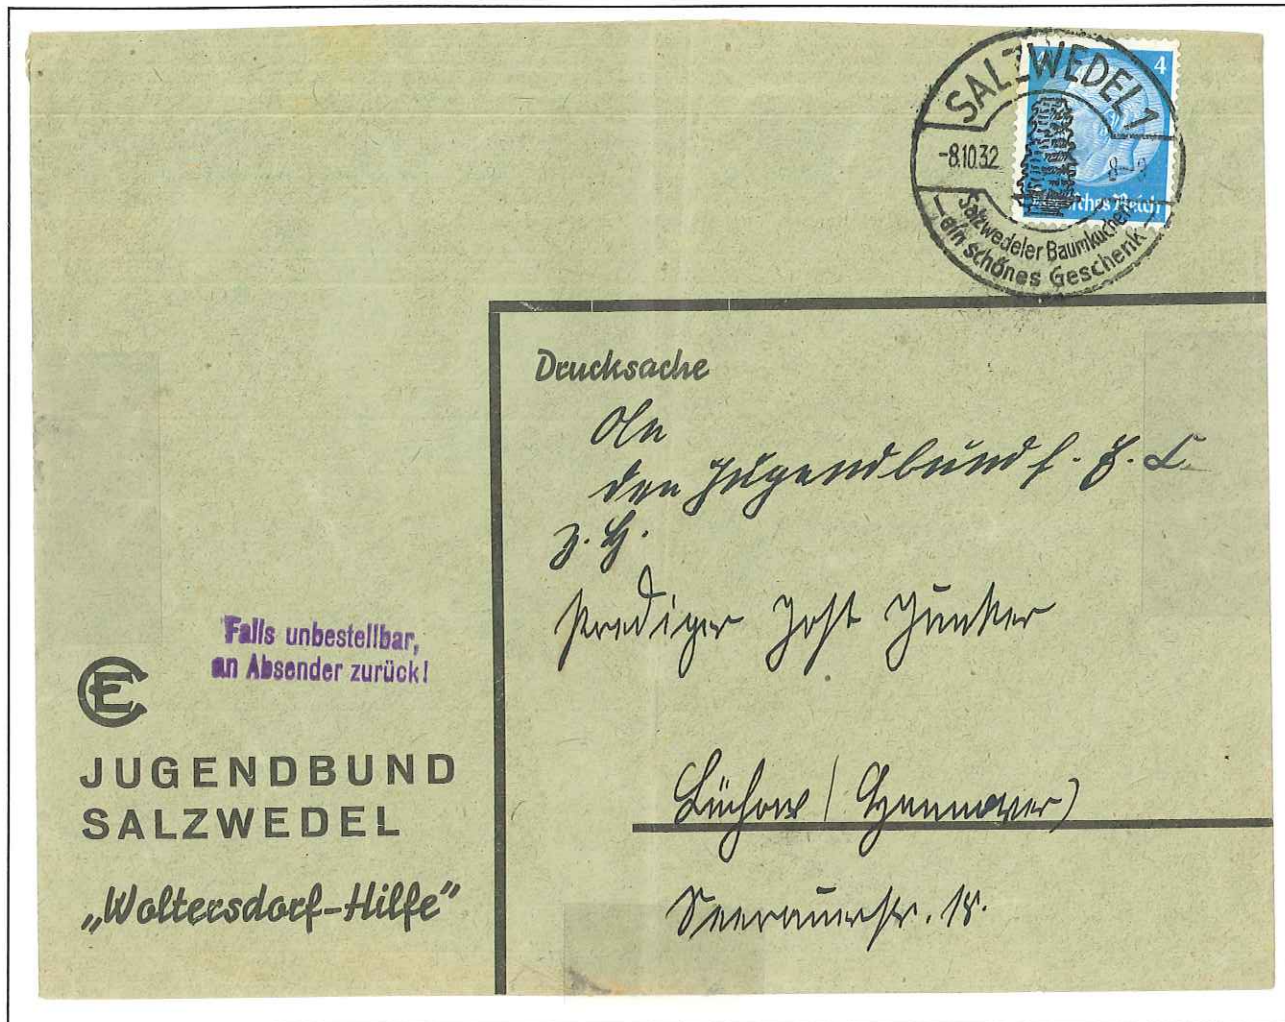 SALZWEDEL 1
4
-8.10.32
8-9
Deutsches Reich
Salzwedeler Baumkuchen
ein schönes Geschenk
Drucksache
An
den Jugendbund f. E. C.
z. H.
Prediger Jost Junker
Lüchow (Hannover)
Seerauerstr.
Falls unbestellbar,
an Absender zurück!
EC
JUGENDBUND
SALZWEDEL
„Woltersdorf-Hilfe"